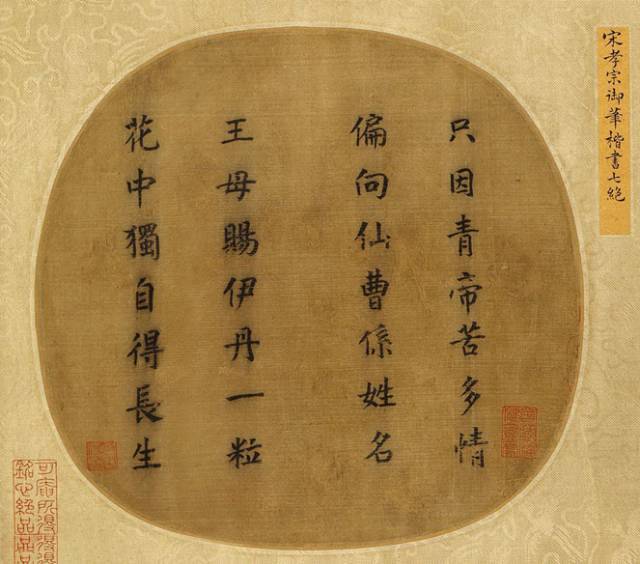 宋孝宗御筆楷書七絕
只因青帝苦多情
偏向仙曹係姓名
王母賜伊丹一粒
花中獨自得長生